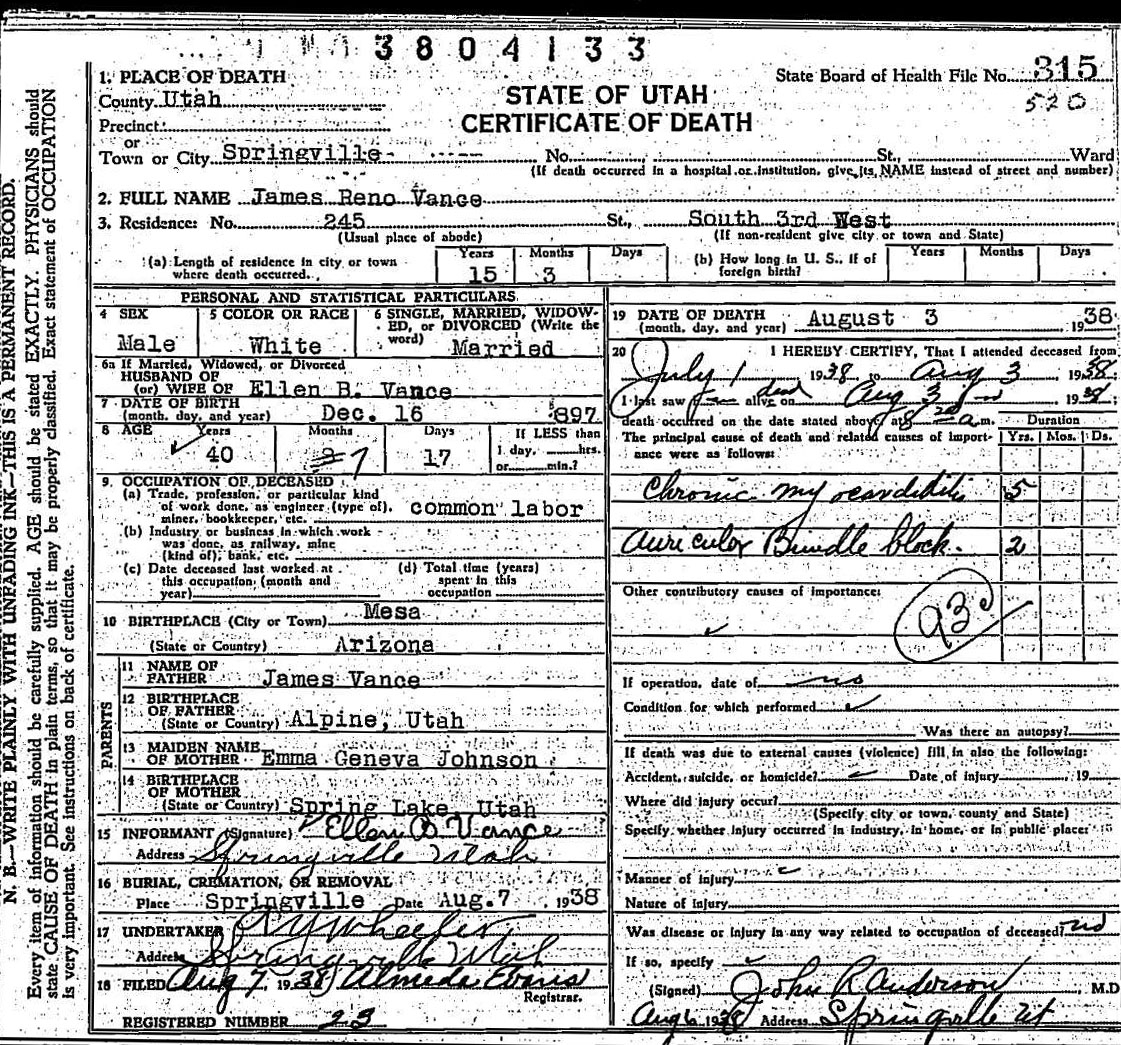 3804133
State Board of Health File No. 315
520
1. PLACE OF DEATH
County Utah
STATE OF UTAH
CERTIFICATE OF DEATH
Precinct
or
Town or City Springville No. St., Ward
(If death occurred in a hospital or institution, give its NAME instead of street and number)
2. FULL NAME James Reno Vance
3. Residence: No. 245 St., South 3rd West
(Usual place of abode) (If non-resident give city or town and State)
(a) Length of residence in city or town where death occurred. Years 15 Months 3 Days
(b) How long in U. S., if of foreign birth? Years Months Days
PERSONAL AND STATISTICAL PARTICULARS
4 SEX Male
5 COLOR OR RACE White
6 SINGLE, MARRIED, WIDOW-
ED, or DIVORCED (Write the
word) Married
6a If Married, Widowed, or Divorced
HUSBAND OF
(or) WIFE OF Ellen B. Vance
7 DATE OF BIRTH
(month, day, and year) Dec. 16 897
8 AGE Years Months Days If LESS than
40 7 17 1 day, hrs.
or min.?
9. OCCUPATION OF DECEASED
(a) Trade, profession, or particular kind
of work done, as engineer (type of),
miner, bookkeeper, etc. common labor
(b) Industry or business in which work
was done, as railway, mine
(kind of), bank, etc.
(c) Date deceased last worked at
this occupation (month and
year)
(d) Total time (years)
spent in this
occupation
10 BIRTHPLACE (City or Town) Mesa
(State or Country) Arizona
PARENTS
11 NAME OF
FATHER James Vance
12 BIRTHPLACE
OF FATHER
(State or Country) Alpine, Utah
13 MAIDEN NAME
OF MOTHER Emma Geneva Johnson
14 BIRTHPLACE
OF MOTHER
(State or Country) Spring Lake, Utah
15 INFORMANT (Signature) Ellen B. Vance
Address Springville Utah
16 BURIAL, CREMATION, OR REMOVAL
Place Springville Date Aug. 7, 1938
17 UNDERTAKER A Y Wheeler
Address Springville Utah
18 FILED Aug 7 1938 Almeda Evans
Registrar.
REGISTERED NUMBER 23
19 DATE OF DEATH
(month, day, and year) August 3 1938
20 I HEREBY CERTIFY, That I attended deceased from
July 1 1938 to Aug 3, 1938
I last saw alive on dead Aug 3, 1938;
death occurred on the date stated above, at 8 20 a m.
The principal cause of death and related causes of import-
ance were as follows:
Duration
Yrs. Mos. Ds.
Chronic myocarditis 5
auricular Bundle block. 2
Other contributory causes of importance:
93c
If operation, date of no
Condition for which performed
Was there an autopsy?
If death was due to external causes (violence) fill in also the following:
Accident, suicide, or homicide? Date of injury 19
Where did injury occur?
(Specify city or town, county and State)
Specify whether injury occurred in industry, in home, or in public place
Manner of injury
Nature of injury
Was disease or injury in any way related to occupation of deceased? no
If so, specify
(Signed) John R Anderson, M.D
Aug 6 1938 Address Springville Ut
N. B.—WRITE PLAINLY WITH UNFADING INK—THIS IS A PERMANENT RECORD.
Every item of information should be carefully supplied. AGE should be stated EXACTLY. PHYSICIANS should
state CAUSE OF DEATH in plain terms, so that it may be properly classified. Exact statement of OCCUPATION
is very important. See instructions on back of certificate.